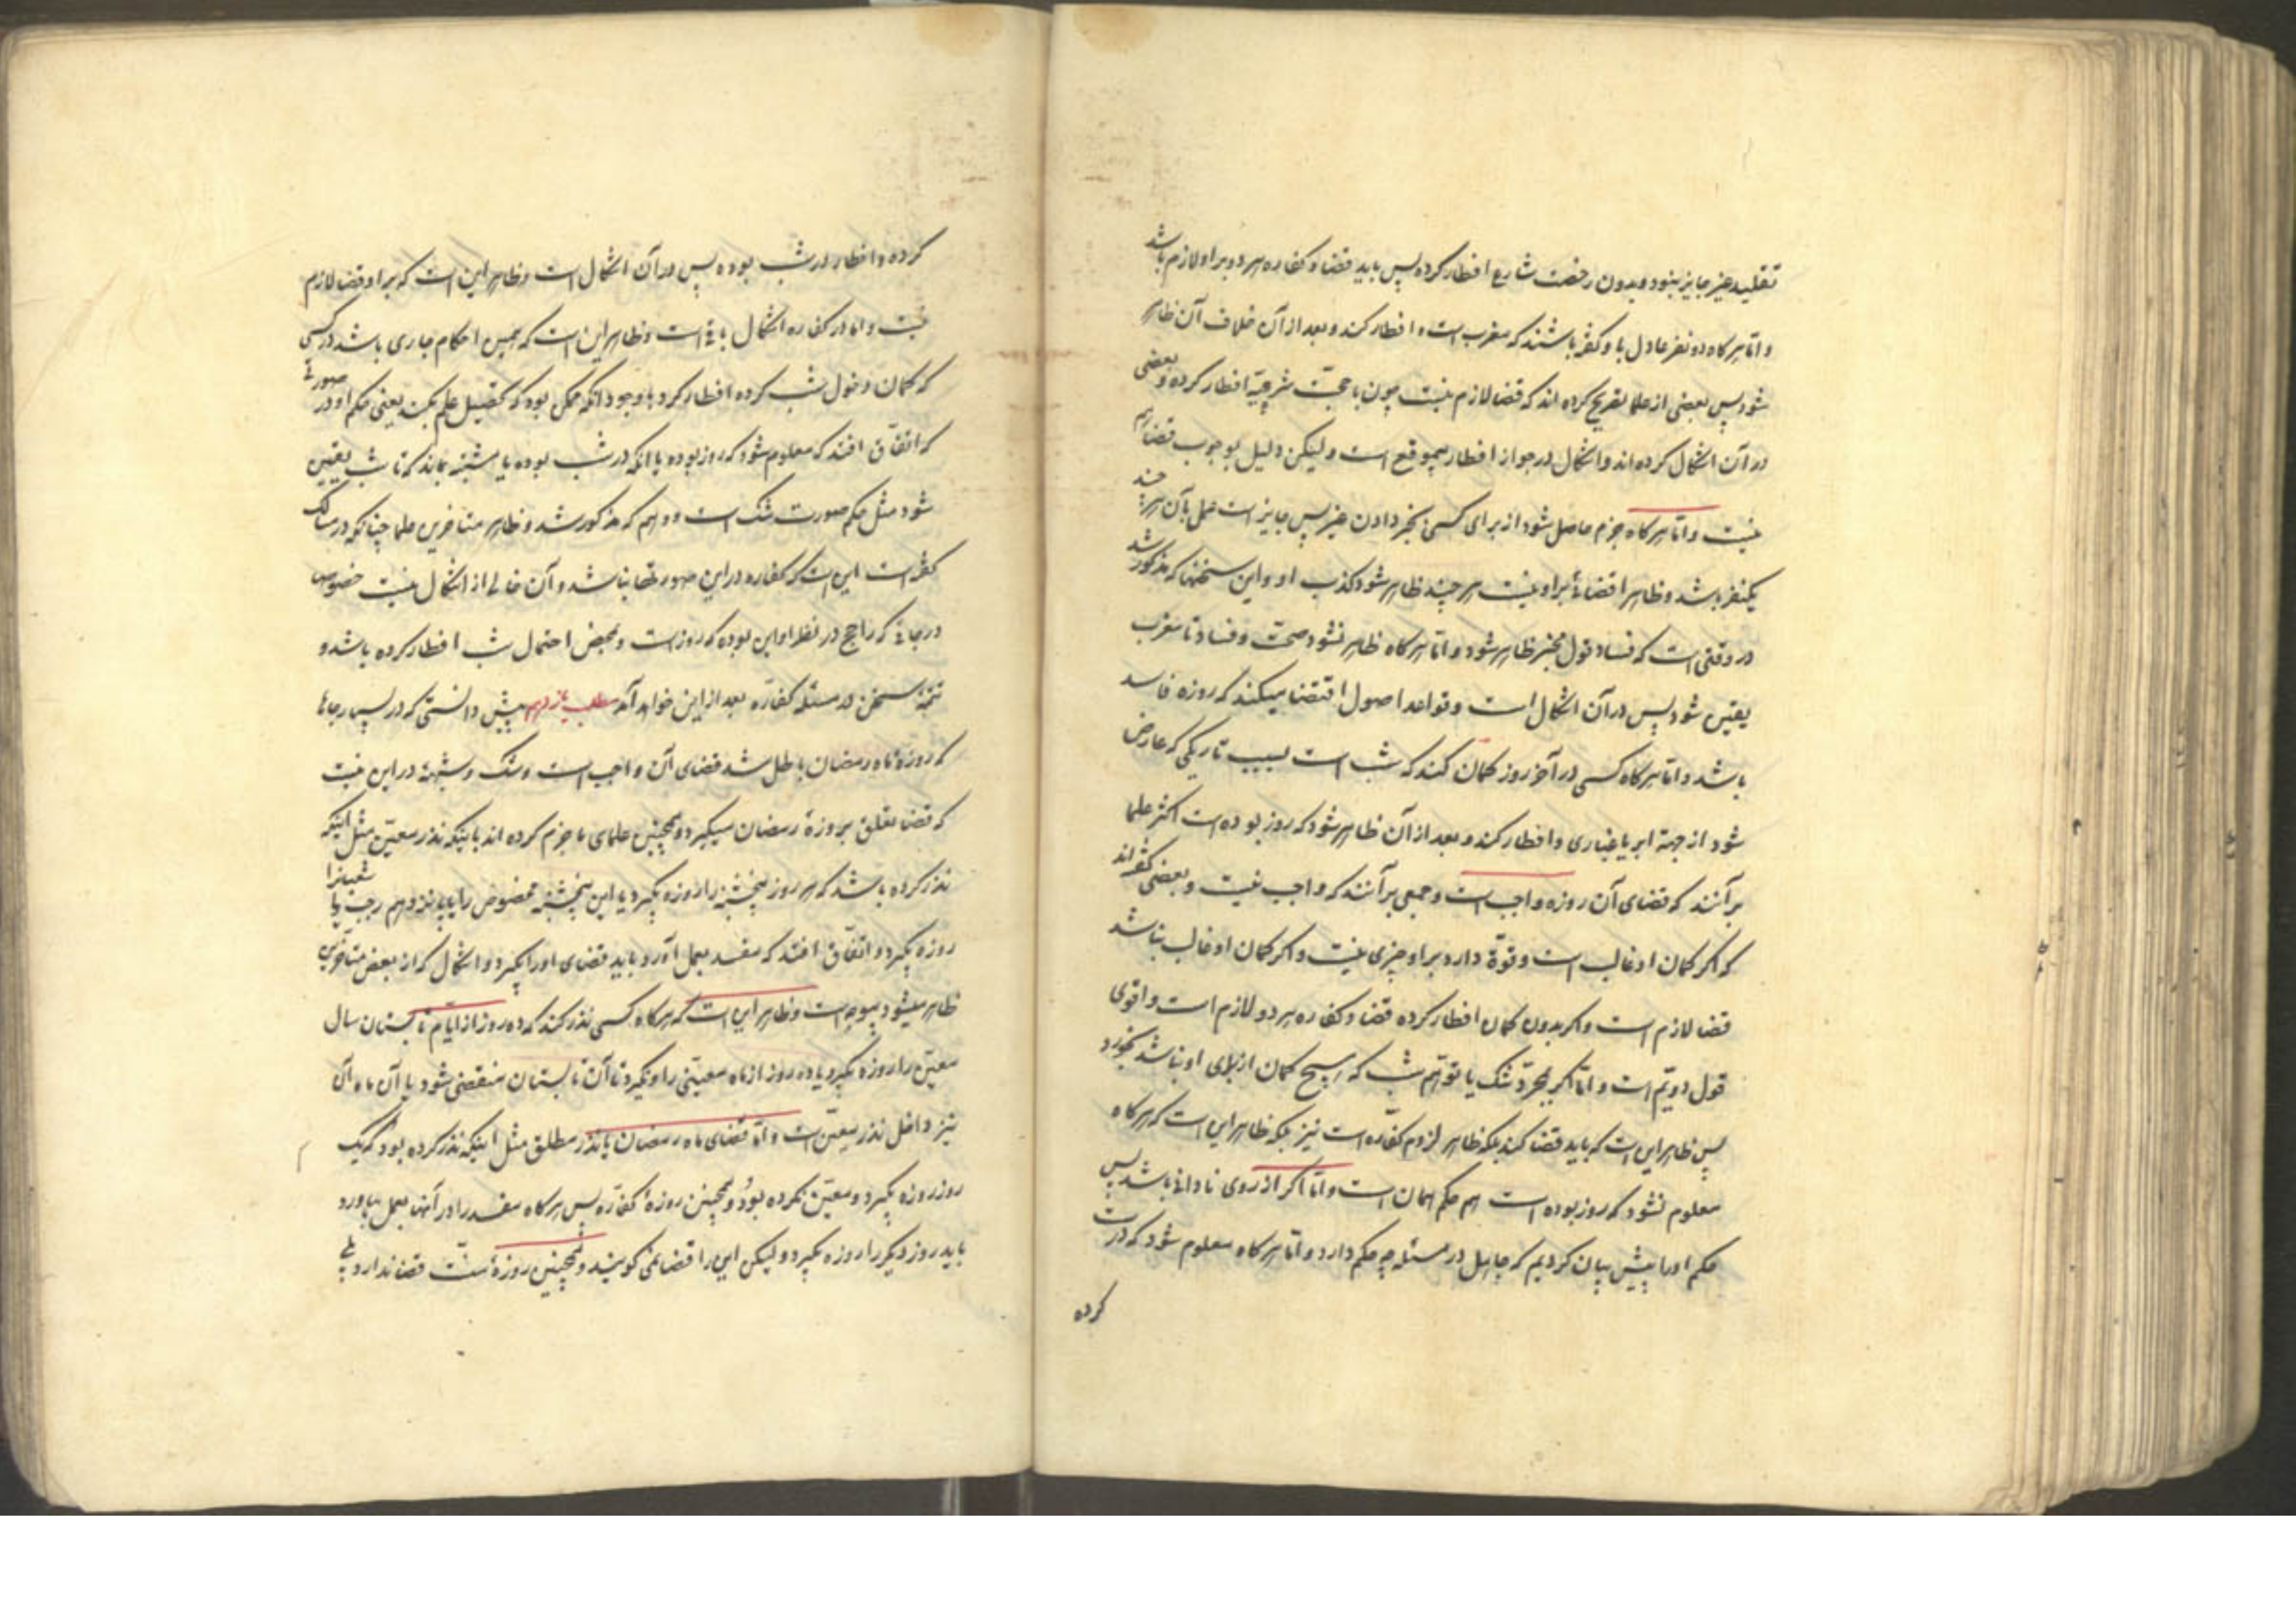 تقلید غیر جایز بنود و بدون رخصت شارع افطار کرده پس باید قضا و کفاره هر دو بر او لازم باشد
و امّا هرگاه دو نفر عادل با و گفته باشند که مغرب است و افطار کند و بعد از آن خلاف آن ظاهر
شود پس بعضی از علما تصریح کرده اند که قضا لازم نیست چون با حجّت شرعیّه افطار کرده و بعضی
در آن اشکال کرده اند و اشکال در جواز افطار بیموقع است و لیکن دلیل بوجوب قضا هم
نیست و امّا هرگاه جزم حاصل شود از برای کسی بخبر دادن غیر پس جایز است عمل بآن هر چند
یکنفر باشد و ظاهرا قضائی بر او نیست هر چند ظاهر شود کذب او و این سخنها که مذکور شد
در وقتی است که فساد قول مخبر ظاهر شود و امّا هرگاه ظاهر نشود صحّت و فساد تا مغرب
یقین شود پس در آن اشکال است و قواعد اصول اقتضا میکند که روزه فاسد
باشد و امّا هرگاه کسی در آخر روز گمان کند که شب است بسبب تاریکی که عارض
شود از جهة ابر یا غباری و افطار کند و بعد از آن ظاهر شود که روز بوده است اکثر علما
بر آنند که قضای آن روزه واجب است و جمعی بر آنند که واجب نیست و بعضی گفته اند
که اگر گمان او غالب است و قوّة دارد بر او چیزی نیست و اگر گمان او غالب نباشد
قضا لازم است و اگر بدون گمان افطار کرده قضا و کفاره هر دو لازم است و اقوی
قول دویّم است و امّا اگر بمجرّد شک یا توهّم شب که هیچ گمان از برای او نباشد بخورد
پس ظاهر این است که باید قضا کند بلکه ظاهر لزوم کفّاره است نیز بلکه ظاهر این است که هرگاه
معلوم نشود که روز بوده است هم حکم همان است و امّا اگر از روی نادانی باشد پس
حکم او را پیش بیان کردیم که جاهل در مسئله چه حکم دارد و امّا هرگاه معلوم شود که درست
کرده
کرده و افطار در شب بوده پس در آن اشکال است و ظاهر این است که بر او قضا لازم
نیست و امّا در کفاره اشکال باقی است و ظاهر این است که همین احکام جاری باشد در کسی
که گمان دخول شب کرده افطار کرد با وجود آنکه ممکن بود که تحصیل علم بکند یعنی حکم او در صورتی
که اتفّاق افتد که معلوم شود که روز بوده یا آنکه در شب بوده یا مشتبه بماند که تا شب یقین
شود مثل حکم صورت شک است و وهم که مذکور شد و ظاهر متأخرین علما چنانکه در مسالک
گفته است این است که کفاره در این صورتها نباشد و آن خالی از اشکال نیست خصوص
در جائی که راجح در نظر او این بوده که روز است و بمحض احتمال شب افطار کرده باشد و
تتمّه سخن در مسئله کفّاره بعد از این خواهد آمد مطلب یازدهم پیش دانستی که در بسیار جاها
که روزه ماه رمضان باطل شد قضای آن واجب است و شک و شبهة در این نیست
که قضا تعلق بروزهٔ رمضان میگیرد و همچنین علمای ما جزم کرده اند باینکه نذر معیّن مثل اینکه
نذر کرده باشد که هر روز پنجشنبه را روزه بگیرد یا این پنجشنبه مخصوص را یا پانزدهم رجب یا شعبانرا
روزه بگیرد و اتفّاق افتد که مفسد بعمل آورد باید قضای او را بگیرد و اشکال که از بعض متأخّرین
ظاهر میشود بیوجه است و ظاهر این است که هرگاه کسی نذر کند که ده روز از ایّام تابستان سال
معیّن را روزه بگیرد یا ده روز از ماه معیّنی را و نگیرد تا آن تابستان منقضی شود یا آن ماه آن
نیز داخل نذر معیّن است و امّا قضای ماه رمضان یا نذر مطلق مثل اینکه نذر کرده بود که یک
روز روزه بگیرد و معیّن نکرده بود و همچنین روزهٔ کفّاره پس هرگاه مفسد را در آنها بعمل بیاورد
باید روز دیگر را روزه بگیرد و لیکن این را قضا نمی گویند و همچنین روزهٔ سنّت قضا ندارد بلی